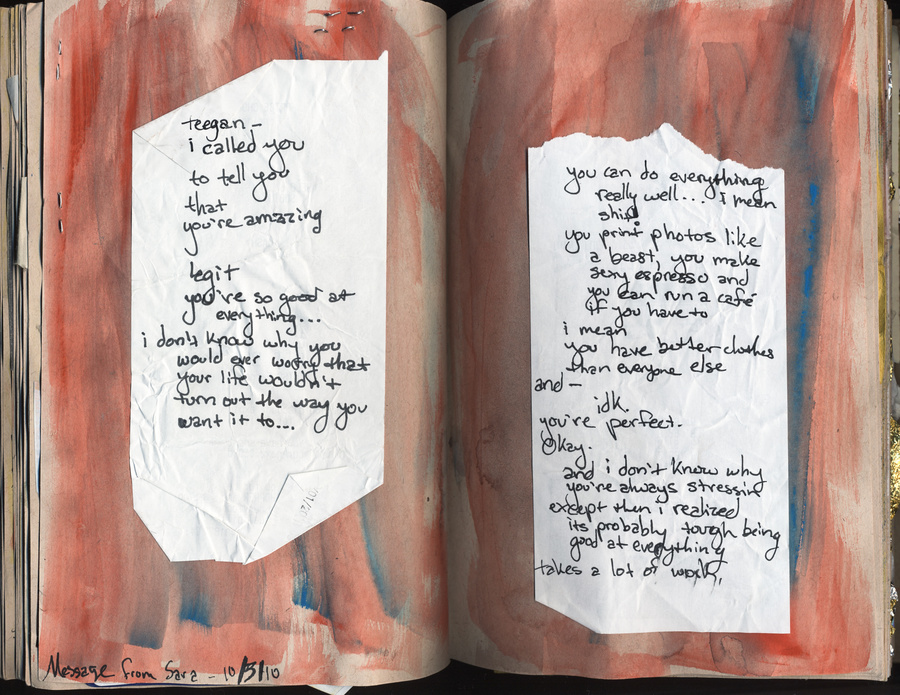 teegan —
i called you
to tell you
that
you're amazing
legit
you're so good at
everything...
i don't know why you
would ever worry that
your life wouldn't
turn out the way you
want it to...
Message from Sara - 10/3/10
you can do everything
really well... i mean
shit
you print photos like
a beast, you make
sexy espresso and
you can run a café
if you have to
i mean
you have better clothes
than everyone else
and —
idk.
you're perfect.
Okay.
and i don't know why
you're always stressin
except then i realized
its probably tough being
good at everything
takes a lot of work.